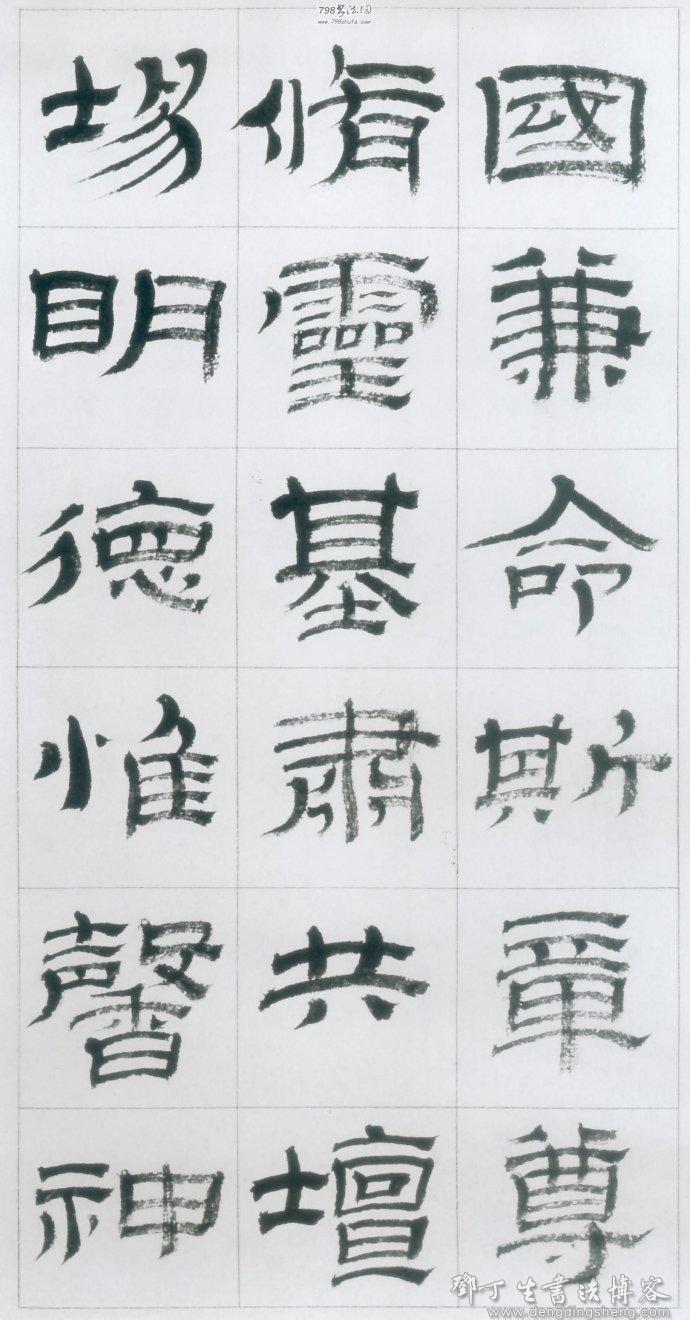 798书法网
www.798shufa.com
國兼命斯章尊
脩靈基肅共壇
場明德惟馨神
鄧丁生書法博客
www.dengdingsheng.com